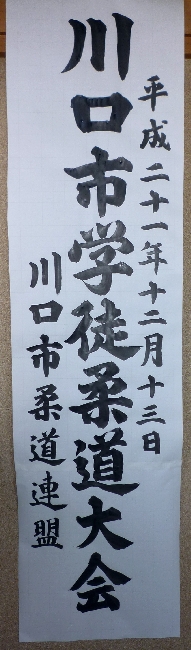 平成二十一年十二月十三日
川口市学徒柔道大会
川口市柔道連盟